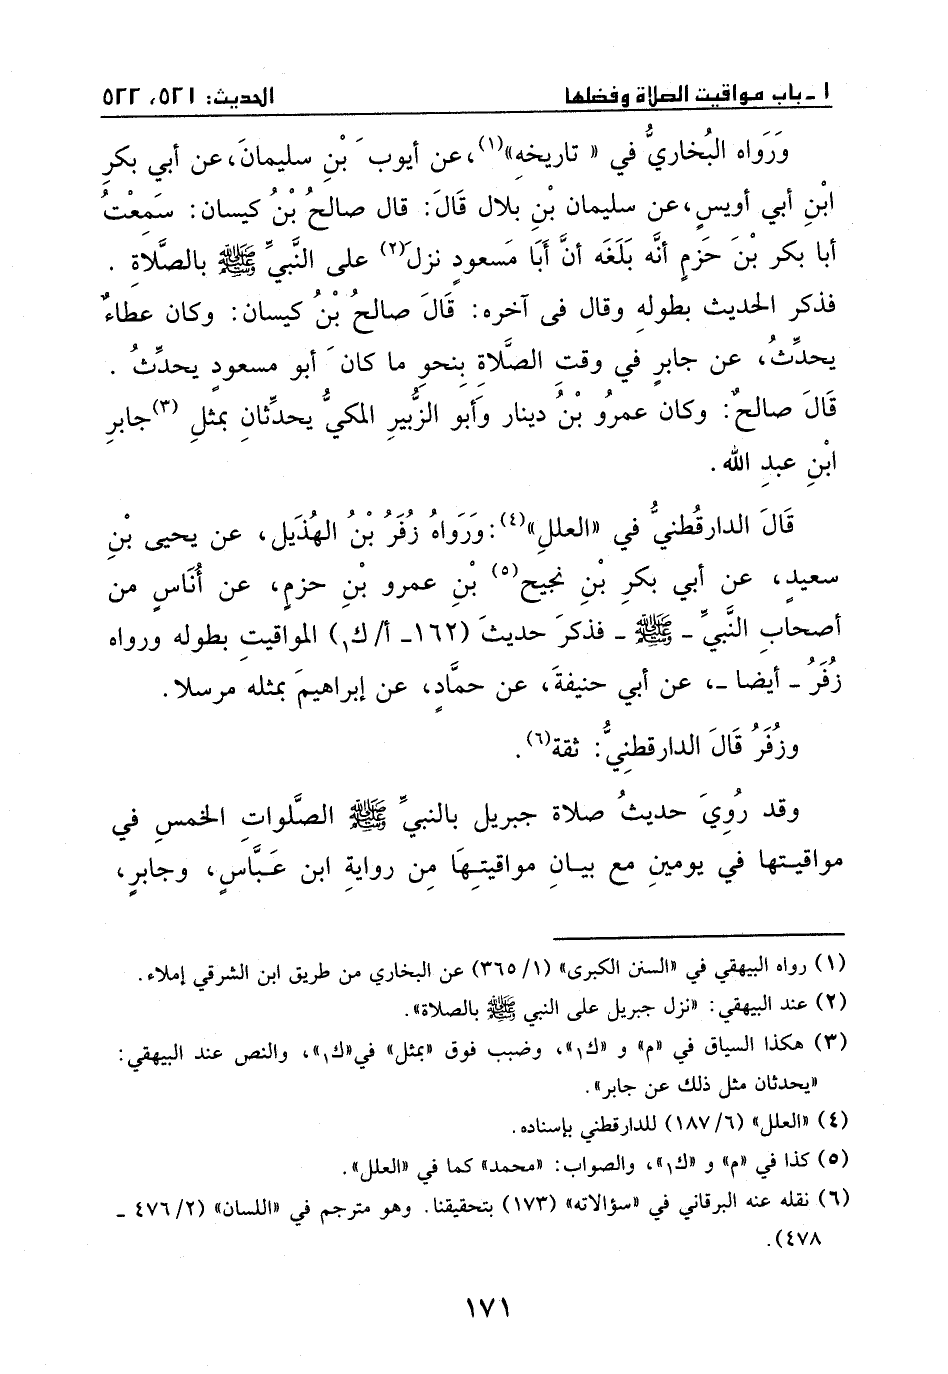 ١ ـ باب مواقيت الصلاة وفضلها الحديث: ٥٢١، ٥٢٢
وَرَواه البُخاريُّ في « تاريخهِ»(١)، عن أيوبَ بْنِ سليمانَ، عن أبي بكرِ
ابْنِ أبي أويسٍ، عن سليمان بْنِ بلال قَالَ: قال صالحُ بْنُ كيسان: سَمِعْتُ
أبا بكر بْنَ حَزمٍ أنَّه بَلَغَه أنَّ أَبَا مَسعودٍ نزلَ(٢) على النَّبيِّ ﷺ بالصلَّاةِ .
فذكر الحديث بطولهِ وقال فى آخره: قَالَ صالحُ بْنُ كيسان: وكان عطاءٌ
يحدِّثُ، عن جابرٍ في وقتِ الصَّلَاةِ بِنحوِ ما كانَ أبو مسعودٍ يحدِّثُ .
قَالَ صالحٌ: وكان عمرُو بْنُ دينار وَأبو الزُّبيرِ المكيُّ يحدِّثانِ بمثلِ (٣)جابرِ
ابْنِ عبدِ الله .
قَالَ الدارقُطنيُّ في «العللِ»(٤): وَرَواهُ زُفَرُ بْنُ الهُذَيل، عن يحيى بْنِ
سعيدٍ، عن أبي بكرِ بْنِ نجيح(٥) بْنِ عمرو بْنِ حزمٍ، عن أُنَاسٍ من
أصحابِ النَّبيِّ ـ ﷺ ـ فذكرَ حديثَ (١٦٢ـ أ/ ك١) المواقيتِ بطوله ورواه
زُفَرُ ـ أيضا ـ، عن أبي حنيفةَ، عن حمَّادٍ، عن إبراهيمَ بمثله مرسلا .
وزُفَرُ قَالَ الدارقطنِيُّ: ثقة(٦).
وقد رُوِيَ حديثُ صلاة جبريل بالنبيِّ ﷺ الصَّلواتِ الخمسِ في
مواقيـتها في يومينِ مع بيـانِ مواقيتِـهَا مِن روايةِ ابن عَبَّـاسٍ، وجابرٍ،
(١) رواه البيهقي في «السنن الكبرى» (١/ ٣٦٥) عن البخاري من طريق ابن الشرقي إملاء.
(٢) عند البيهقي: «نزل جبريل على النبي ﷺ بالصلاة».
(٣) هكذا السياق في «م» و «ك١»، وضبب فوق «بمثل» في«ك١»، والنص عند البيهقي:
«يحدثان مثل ذلك عن جابر».
(٤) «العلل» (٦/ ١٨٧) للدارقطني بإسناده.
(٥) كذا في «م» و «ك١»، والصواب: «محمد» كما في «العلل».
(٦) نقله عنه البرقاني في «سؤالاته» (١٧٣) بتحقيقنا. وهو مترجم في «اللسان» (٢/ ٤٧٦ ـ
٤٧٨).
١٧١